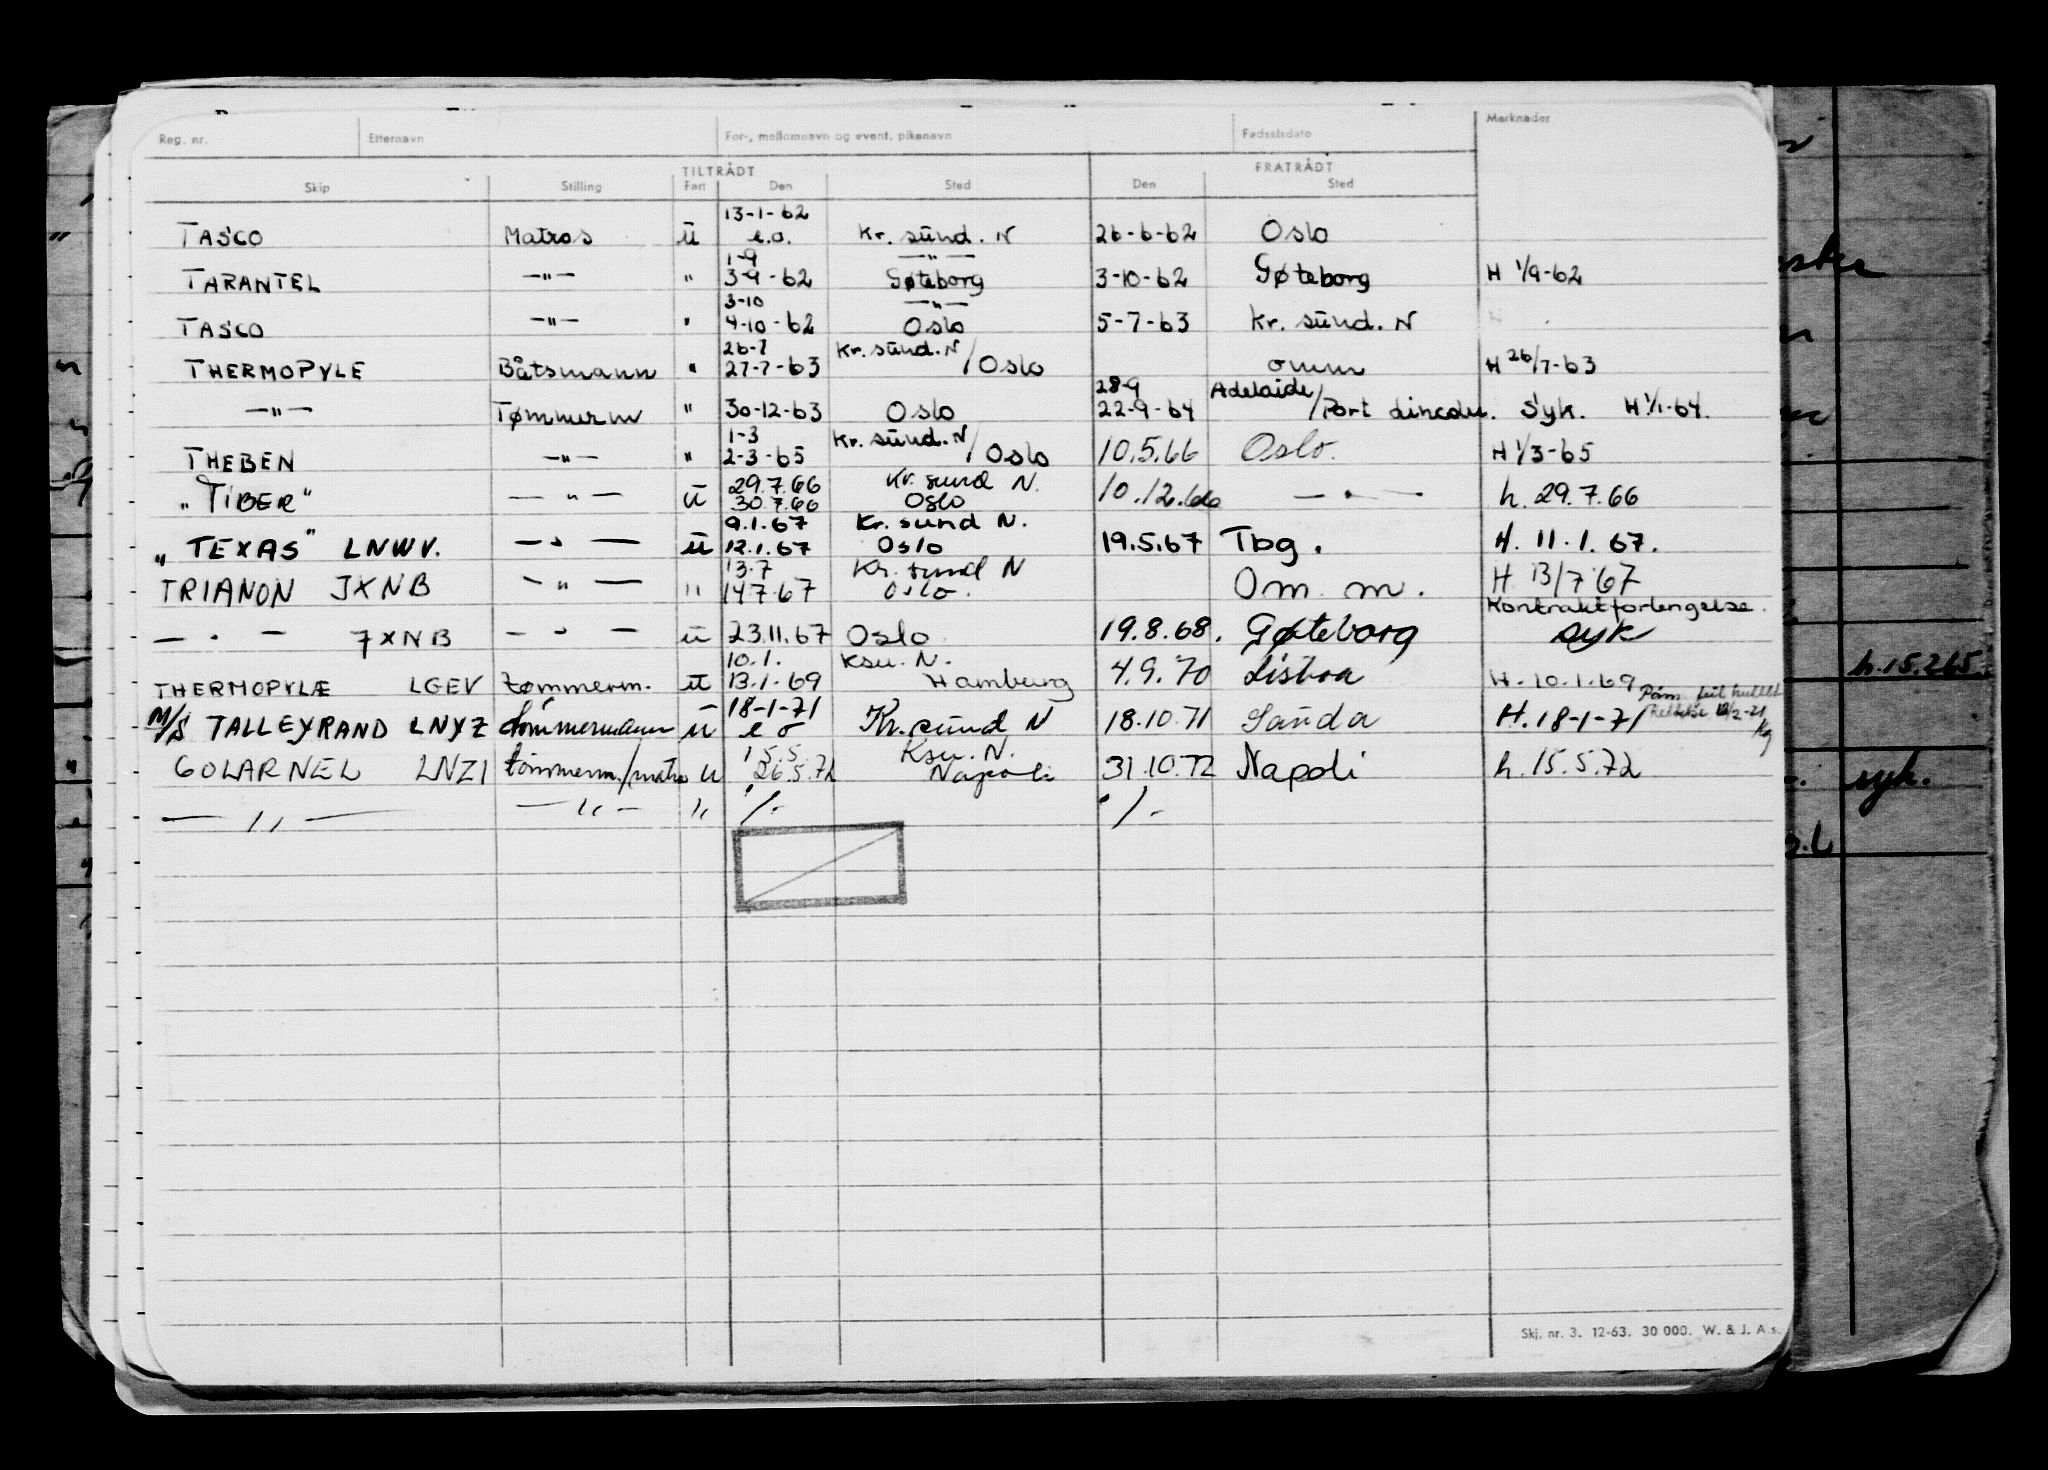 Reg. nr. Etternavn For-, mellomnavn og event. pikenavn Fødselsdato Merknader
TILTRÅDT FRATRÅDT
Skip Stilling Fart Den Sted Den Sted
13-1-62
TASCO Matros ū e.o. Kr. sund. N 26-6-62 Oslo
1-9 —"—
TARANTEL —"— " 3-9-62 Gøteborg 3-10-62 Gøteborg H 1/9-62
3-10 —"—
TASCO —"— " 4-10-62 Oslo 5-7-63 Kr. sund. N
26-7 Kr. sund. N
THERMOPYLE Båtsmann " 27-7-63 / Oslo omm H 26/7-63
28-9 Adelaide
—"— Tømmerm " 30-12-63 Oslo 22-9-64 / Port Lincoln. Syk. H 1/1-64.
1-3 Kr. sund. N
THEBEN —"— " 2-3-65 / Oslo 10.5.66 Oslo. H 1/3-65
29.7.66 Kr. sund N.
"TIBER" —"— ū 30.7.66 Oslo 10.12.66 —"— h. 29.7.66
9.1.67 Kr. sund N.
"TEXAS" LNWV. —"— ū 12.1.67 Oslo 19.5.67 Tbg. H. 11.1.67.
13.7 Kr. sund N
TRIANON JXNB —"— " 14.7.67 Oslo. Om. m. H 13/7 67
Kontraktforlengelse.
—"— JXNB —"— ū 23.11.67 Oslo 19.8.68. Gøteborg syk
10.1. Ksu. N.
THERMOPYLÆ LGEV tømmerm. ū 13.1.69 Hamburg 4.9.70 Lisboa H. 10.1.69
18-1-71
M/S TALLEYRAND LNYZ tömmermann ū e o Kr. sund N 18.10.71 Sauda H. 18-1-71
15.5. Ksu. N.
GOLAR NEL LNZI tömmerm./matr u 26.5.72 Napoli 31.10.72 Napoli h. 15.5.72
—"— —"— " ·/- ·/-
h.15.2.65.
syk.
Skj. nr. 3. 12-63. 30 000. W. & J. A.s.